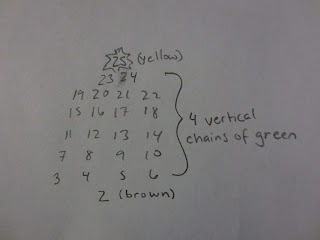 25 (yellow)
23 24
19 20 21 22
15 16 17 18
11 12 13 14
7 8 9 10
3 4 5 6
4 vertical
chains of green
2 (brown)